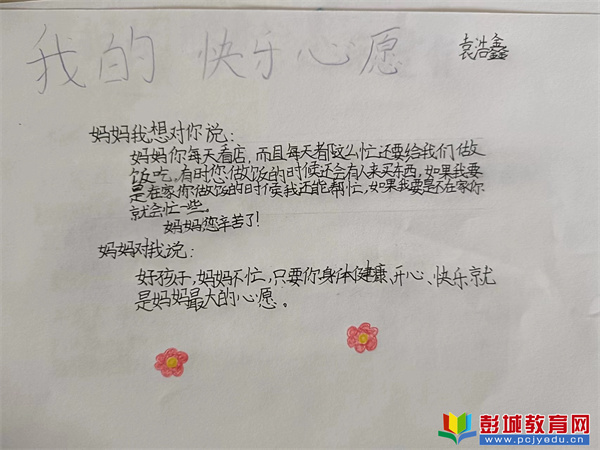 我的 快乐心愿
袁浩鑫
妈妈我想对你说：
妈妈你每天看店，而且每天都这么忙还要给我们做
饭吃。有时您做饭的时候还会有人来买东西，如果我要
是在家你做饭的时侯我还能帮忙，如果我要是不在家你
就会忙一些。
妈妈您辛苦了！
妈妈对我说：
好孩子，妈妈不忙，只要你身体健康、开心、快乐就
是妈妈最大的心愿。
彭城教育网
www.pcjyedu.cn